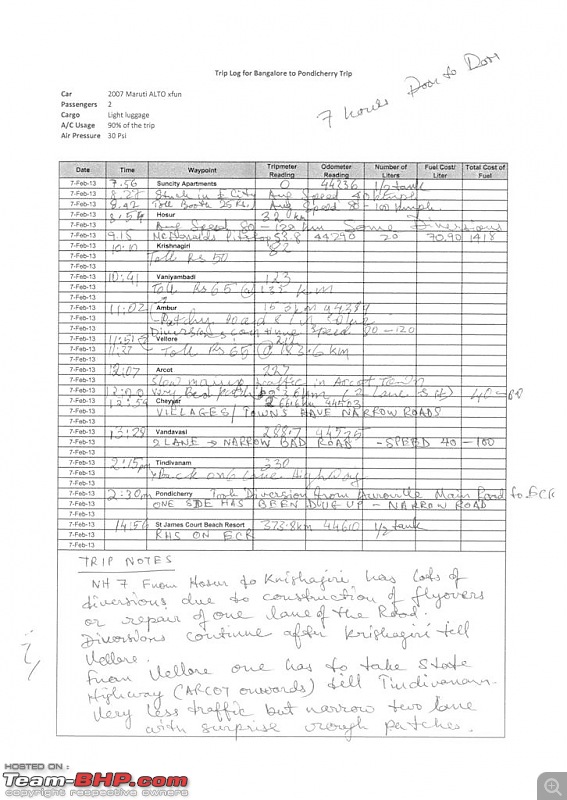 Trip Log for Bangalore to Pondicherry Trip
7 hours Door to Door
Car 2007 Maruti ALTO xfun
Passengers 2
Cargo Light luggage
A/C Usage 90% of the trip
Air Pressure 30 Psi
Date Time Waypoint Tripmeter Reading Odometer Reading Number of Liters Fuel Cost/ Liter Total Cost of Fuel
7-Feb-13 7.56 Suncity Apartments 0 44236 1/2 tank
7-Feb-13 8.27 Stuck in E City Avg Speed 40
7-Feb-13 8.42 Toll Booth 25 Rs. Avg Speed 80 - 100 kmph
7-Feb-13 8:54 Hosur 32 km
7-Feb-13 Avg Speed 80 - 120 km Some Diversions
7-Feb-13 9.15 McDonalds 53.8 44290 20 70.90 1418
7-Feb-13 10:10 Krishnagiri 82
7-Feb-13 Toll Rs 50
7-Feb-13
7-Feb-13 10:41 Vaniyambadi 123
7-Feb-13 Toll Rs 65 @ 135 km
7-Feb-13
7-Feb-13 11:02 Ambur
7-Feb-13 Patchy Road
7-Feb-13 Diversions continue Speed 80 - 120
7-Feb-13 Vellore
7-Feb-13 11:27 Toll Rs 65 @ 183.6 km
7-Feb-13
7-Feb-13 12:07 Arcot 227
7-Feb-13 Slow moving traffic in Arcot Town
7-Feb-13 Very Bad 2 Lane 40-60
7-Feb-13 12:59 Cheyyar 44503
7-Feb-13 VILLAGES/TOWNS HAVE NARROW ROADS
7-Feb-13
7-Feb-13 13:29 Vandavasi 288.7 44525
7-Feb-13 2 LANE → NARROW BAD ROAD - SPEED 40 - 100
7-Feb-13
7-Feb-13 2:15pm Tindivanam 330
7-Feb-13 Back on 6 Lane Highway
7-Feb-13
7-Feb-13 2:30pm Pondicherry Took Diversion from Auroville Main Road to ECR
7-Feb-13 ONE SIDE HAS BEEN DUG UP - NARROW ROAD
7-Feb-13
7-Feb-13 14:56 St James Court Beach Resort 373.8km 44610 1/2 tank
7-Feb-13 RHS ON ECR
7-Feb-13
TRIP NOTES
NH 7 From Hosur to Krishagiri has lots of
diversions due to construction of flyovers
or repair of one lane of the Road.
Diversions continue after Krishagiri till
Vellore.
From Vellore one has to take State
Highway (ARCOT onwards) till Tindivanam.
Very less traffic but narrow two lane
with surprise rough patches.
HOSTED ON :
Team-BHP.com
copyright respective owners